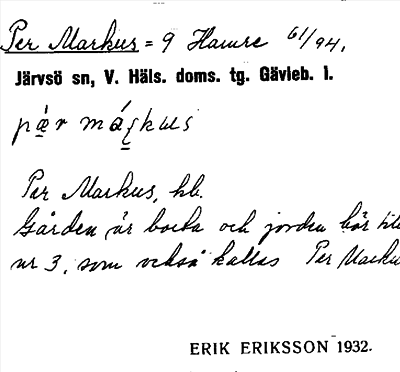 Per Markus = 9 Hamre 61/94.
Järvsö sn, V. Häls. doms. tg. Gävleb. l.
pæ̀r má kus
Per Markus, hb.
Gården är borta och jorden hör till
nr 3, som också kallas Per Marku
ERIK ERIKSSON 1932.